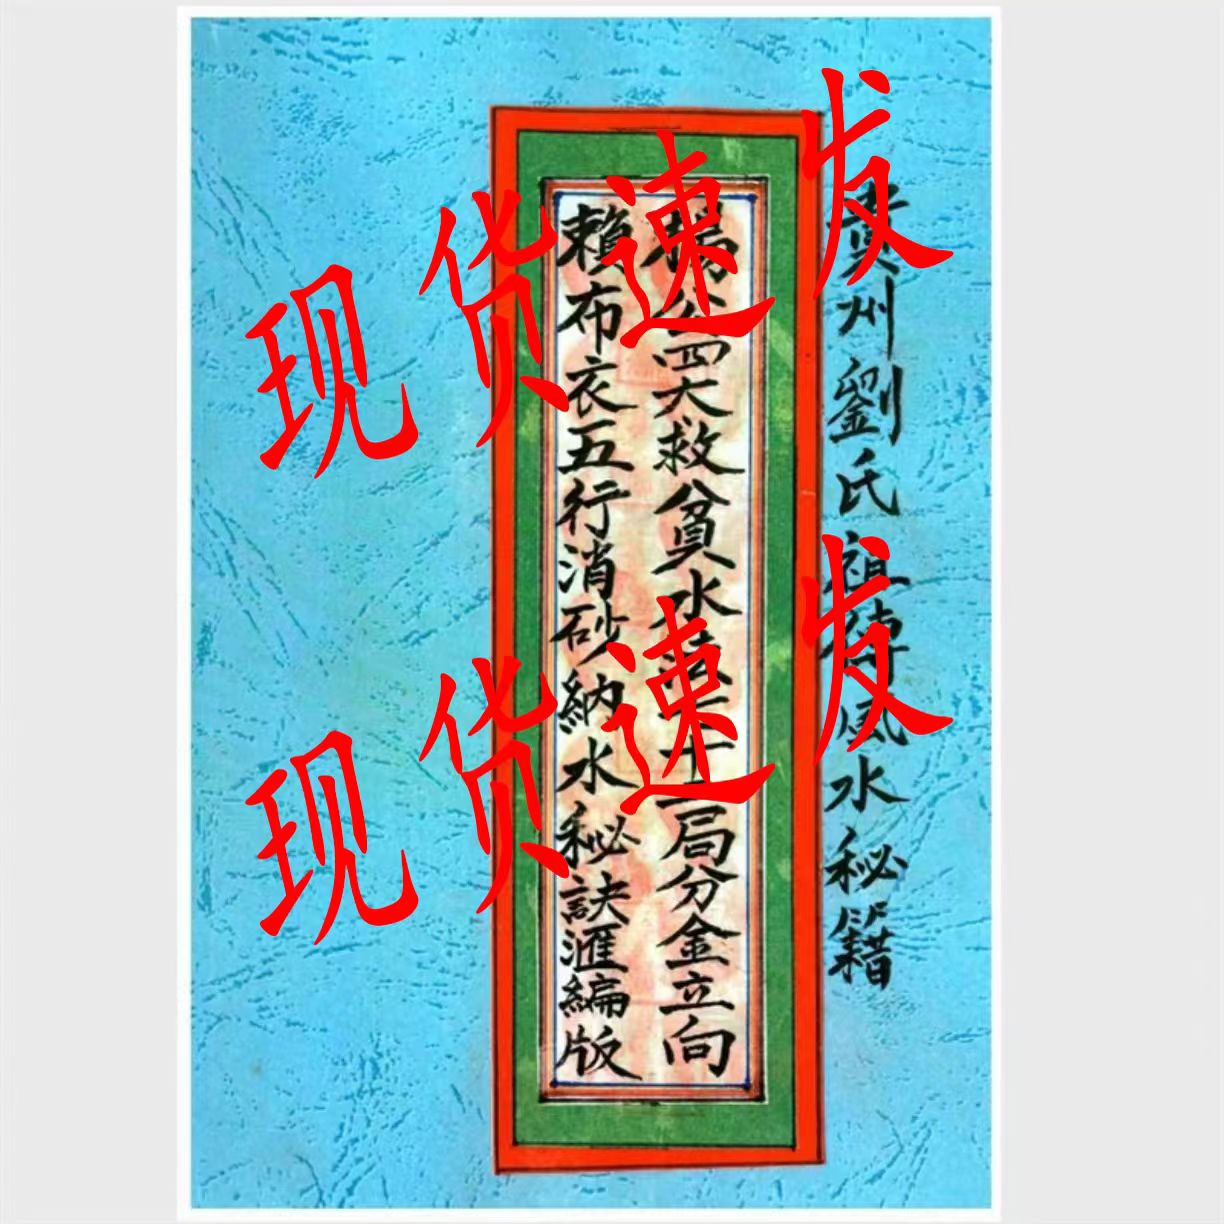 州劉氏祖傳風水秘籍
楊公四大救貧水法七十二局分金立向
賴布衣五行消砂納水秘訣滙編版
现货速发
现货速发